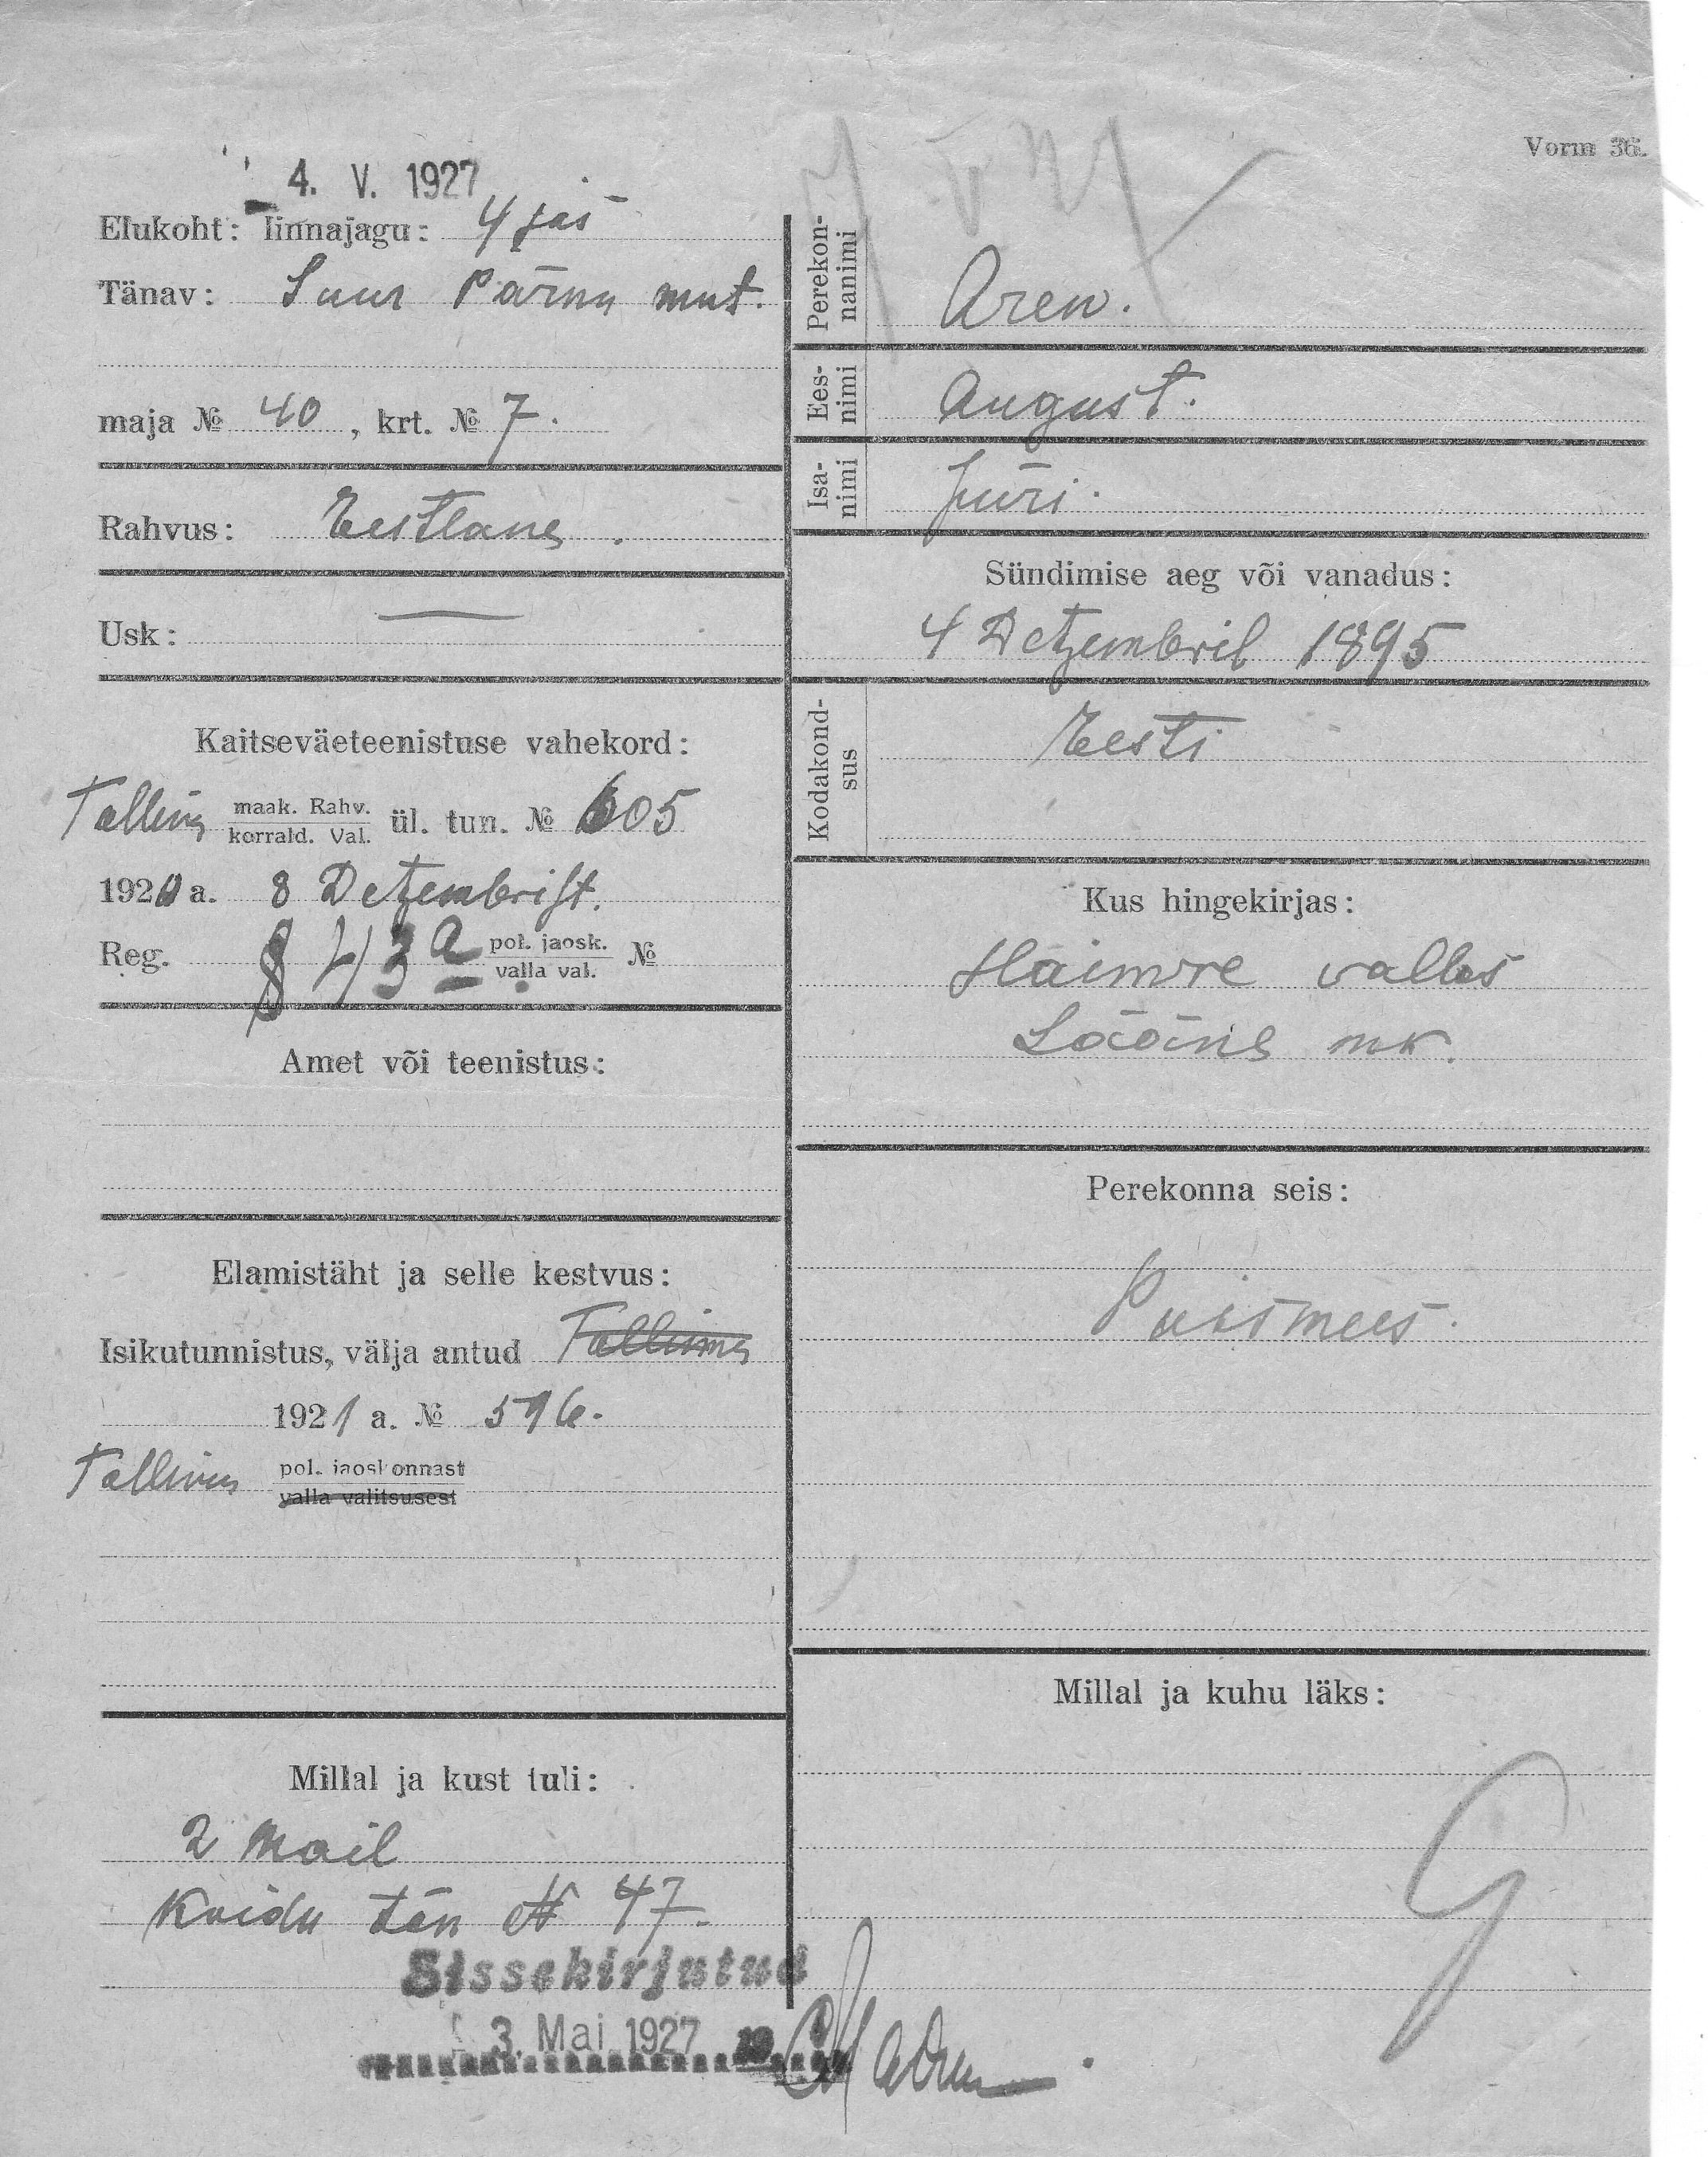 Vorm 36.
4. V. 1927
Elukoht: linnajagu: 4 jas
Tänav: Suur Pärnu mnt.
maja № 40, krt. № 7.
Rahvus: Eestlane.
Usk: —
Kaitseväeteenistuse vahekord:
Tallinn maak. Rahv. ül. tun. № 605
korrald. Val.
1920 a. 8 Detzembrist.
Reg. § 43 a pol. jaosk. №
valla val.
Amet või teenistus:
Elamistäht ja selle kestvus:
Isikutunnistus, välja antud Tallinna
1921 a. № 596.
Tallinna pol. jaoskonnast
valla valitsusest
Millal ja kust tuli:
2 Mail
Koidu tän № 47.
Sissekirjutud
3. Mai 1927 19
Perekon-
nanimi Aren.
Ees-
nimi August.
Isa-
nimi Jüri.
Sündimise aeg või vanadus:
4 Detzembril 1895
Kodakond-
sus Eesti
Kus hingekirjas:
Haimre vallas
Lääne mk.
Perekonna seis:
Poismees.
Millal ja kuhu läks: